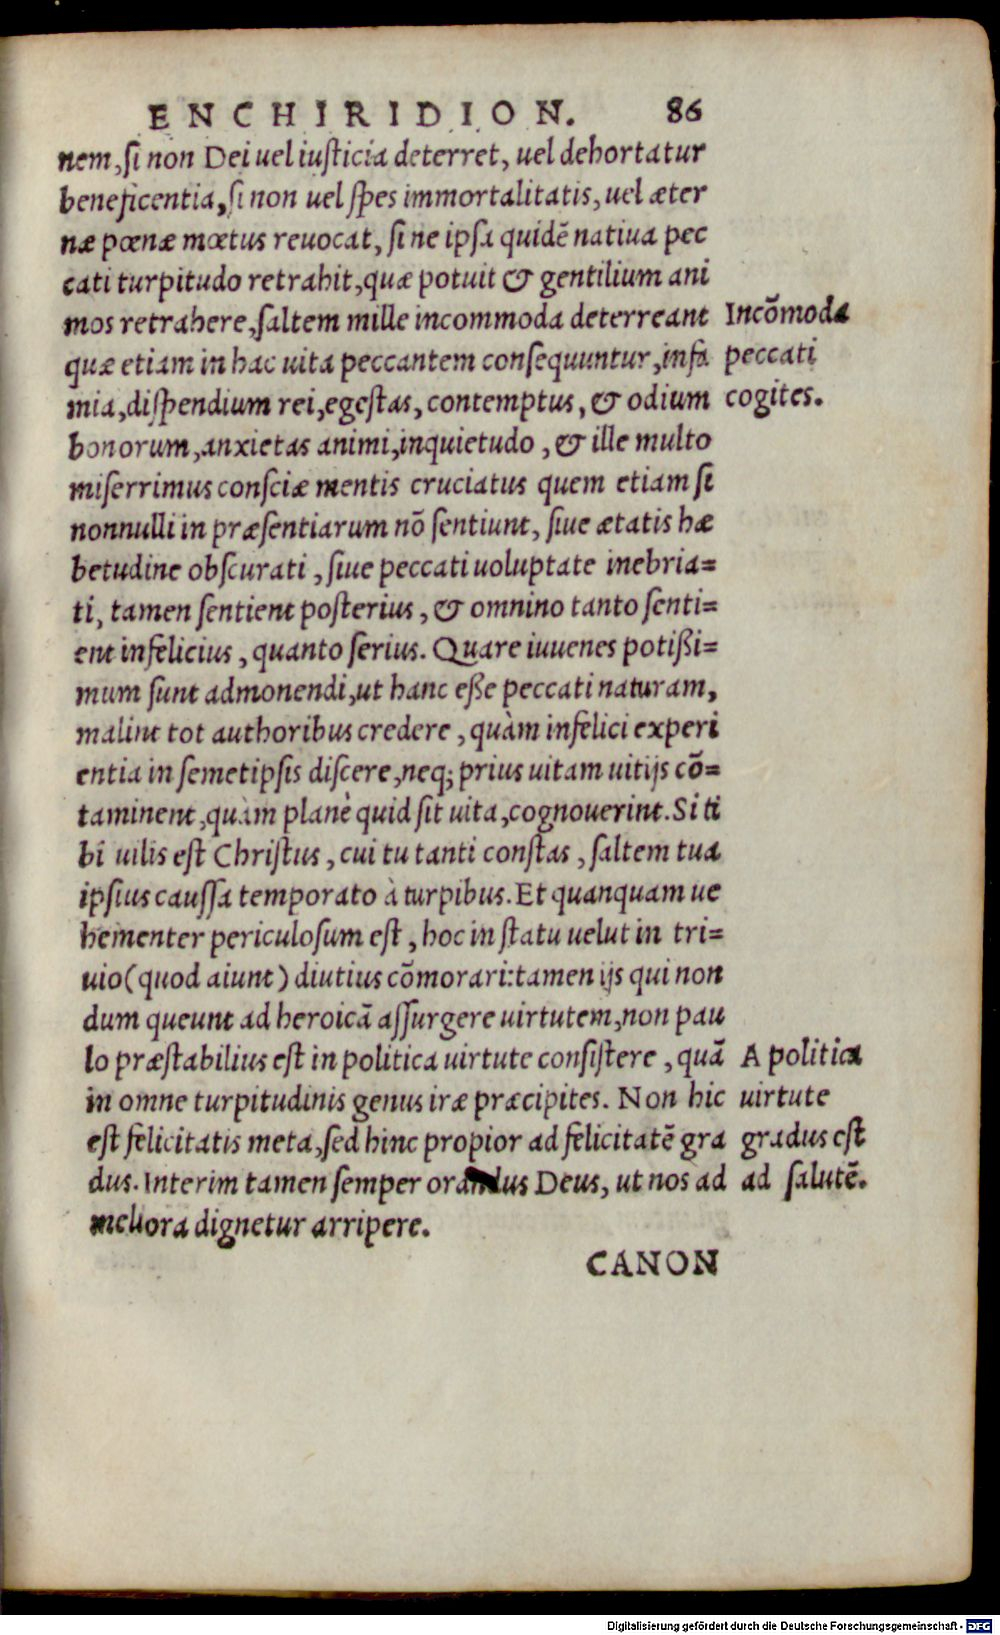 ENCHIRIDION. 86
nem, si non Dei uel iusticia deterret, uel dehortatur
beneficentia, si non uel spes immortalitatis, uel æter
næ pœnæ mœtus reuocat, si ne ipsa quidẽ natiua pec
cati turpitudo retrahit, quæ potuit & gentilium ani
mos retrahere, saltem mille incommoda deterreant
quæ etiam in hac uita peccantem consequuntur, infa
mia, dispendium rei, egestas, contemptus, & odium
bonorum, anxietas animi, inquietudo, & ille multo
miserrimus consciæ mentis cruciatus quem etiam si
nonnulli in præsentiarum nõ sentiunt, siue ætatis hæ
betudine obscurati, siue peccati uoluptate inebria=
ti, tamen sentient posterius, & omnino tanto senti=
ent infelicius, quanto serius. Quare iuuenes potißi=
mum sunt admonendi, ut hanc eße peccati naturam,
malint tot authoribus credere, quàm infelici experi
entia in semetipsis discere, neq; prius uitam uitijs cõ=
taminent, quàm planè quid sit uita, cognouerint. Si ti
bi uilis est Christus, cui tu tanti constas, saltem tua
ipsius caussa temporato à turpibus. Et quanquam ue
hementer periculosum est, hoc in statu uelut in tri=
uio (quod aiunt) diutius cõmorari: tamen ijs qui non
dum queunt ad heroicã assurgere uirtutem, non pau
lo præstabilius est in politica uirtute consistere, quã
in omne turpitudinis genus iræ præcipites. Non hic
est felicitatis meta, sed hinc propior ad felicitatẽ gra
dus. Interim tamen semper orandus Deus, ut nos ad
meliora dignetur arripere.
CANON
Incõmoda
peccati
cogites.
A politica
uirtute
gradus est
ad salutẽ.
Digitalisierung gefördert durch die Deutsche Forschungsgemeinschaft - DFG